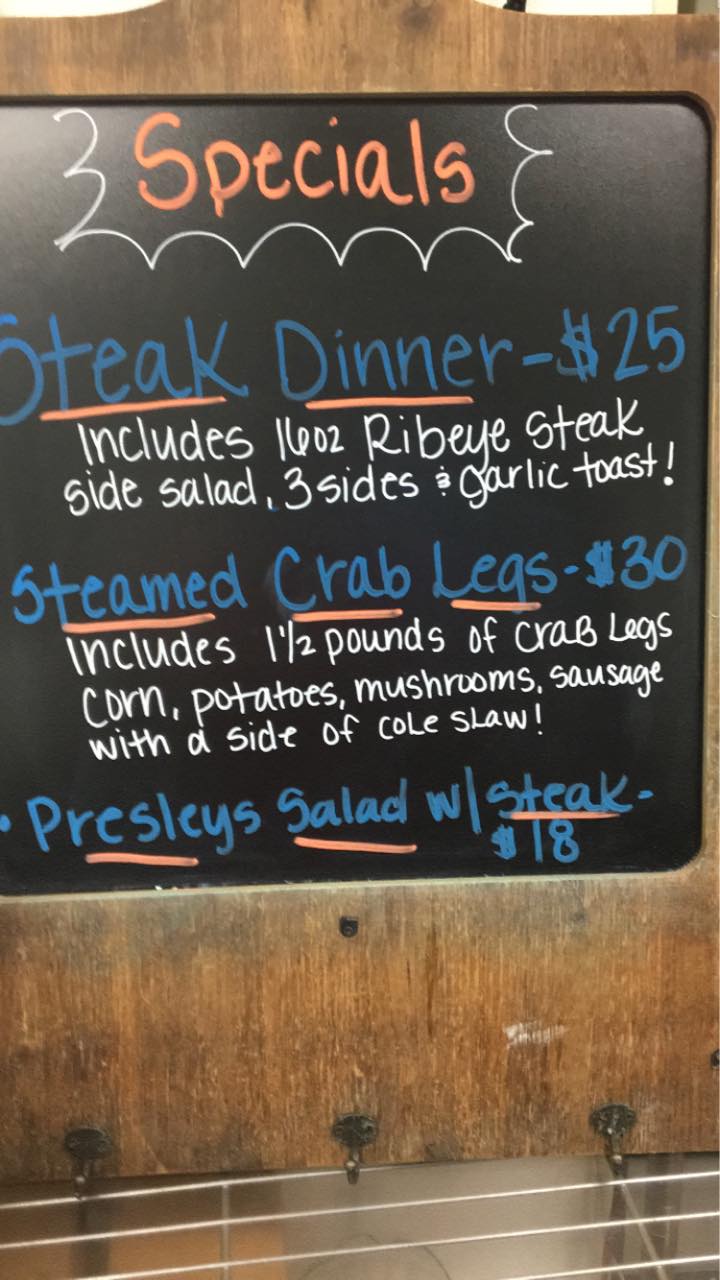 Specials
Steak Dinner - $25
Includes 16oz Ribeye Steak
side salad, 3 sides & garlic toast!
Steamed Crab Legs - $30
Includes 1 1/2 pounds of Crab Legs
Corn, potatoes, mushrooms, sausage
with a side of cole slaw!
• Presleys Salad w/ Steak -
$18